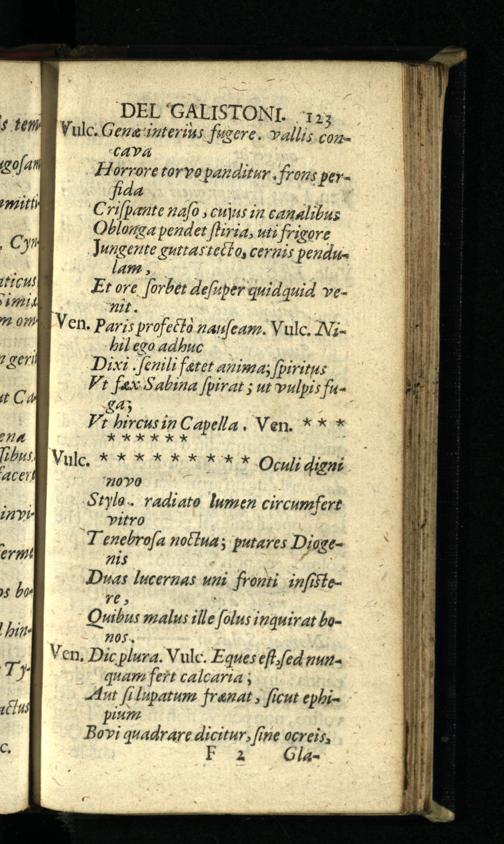 DEL GALISTONI. 123
Vulc. Genæ interiùs fugere. vallis con-
cava
Horrore torvo panditur. frons per-
fida
Criſpante naſo, cujus in canalibus
Oblonga pendet ſtiria, uti frigore
Jungente guttas tecto, cernis pendu-
lam,
Et ore ſorbet deſuper quidquid ve-
nit.
Ven. Paris profectò nauſeam. Vulc. Ni-
hil ego adhuc
Dixi. ſenili fætet anima; ſpiritus
Vt fæx Sabina ſpirat; ut vulpis fu-
ga;
Vt hircus in Capella. Ven. * * *
* * * * * *
Vulc. * * * * * * * * * Oculi digni
novo
Stylo. radiato lumen circumfert
vitro
Tenebroſa noctua; putares Dioge-
nis
Duas lucernas uni fronti inſiſte-
re,
Quibus malus ille ſolus inquirat bo-
nos.
Ven. Dic plura. Vulc. Eques eſt, ſed nun-
quam fert calcaria;
Aut ſi lupatum frænat, ſicut ephi-
pium
Bovi quadrare dicitur, ſine ocreis,
F 2 Gla-